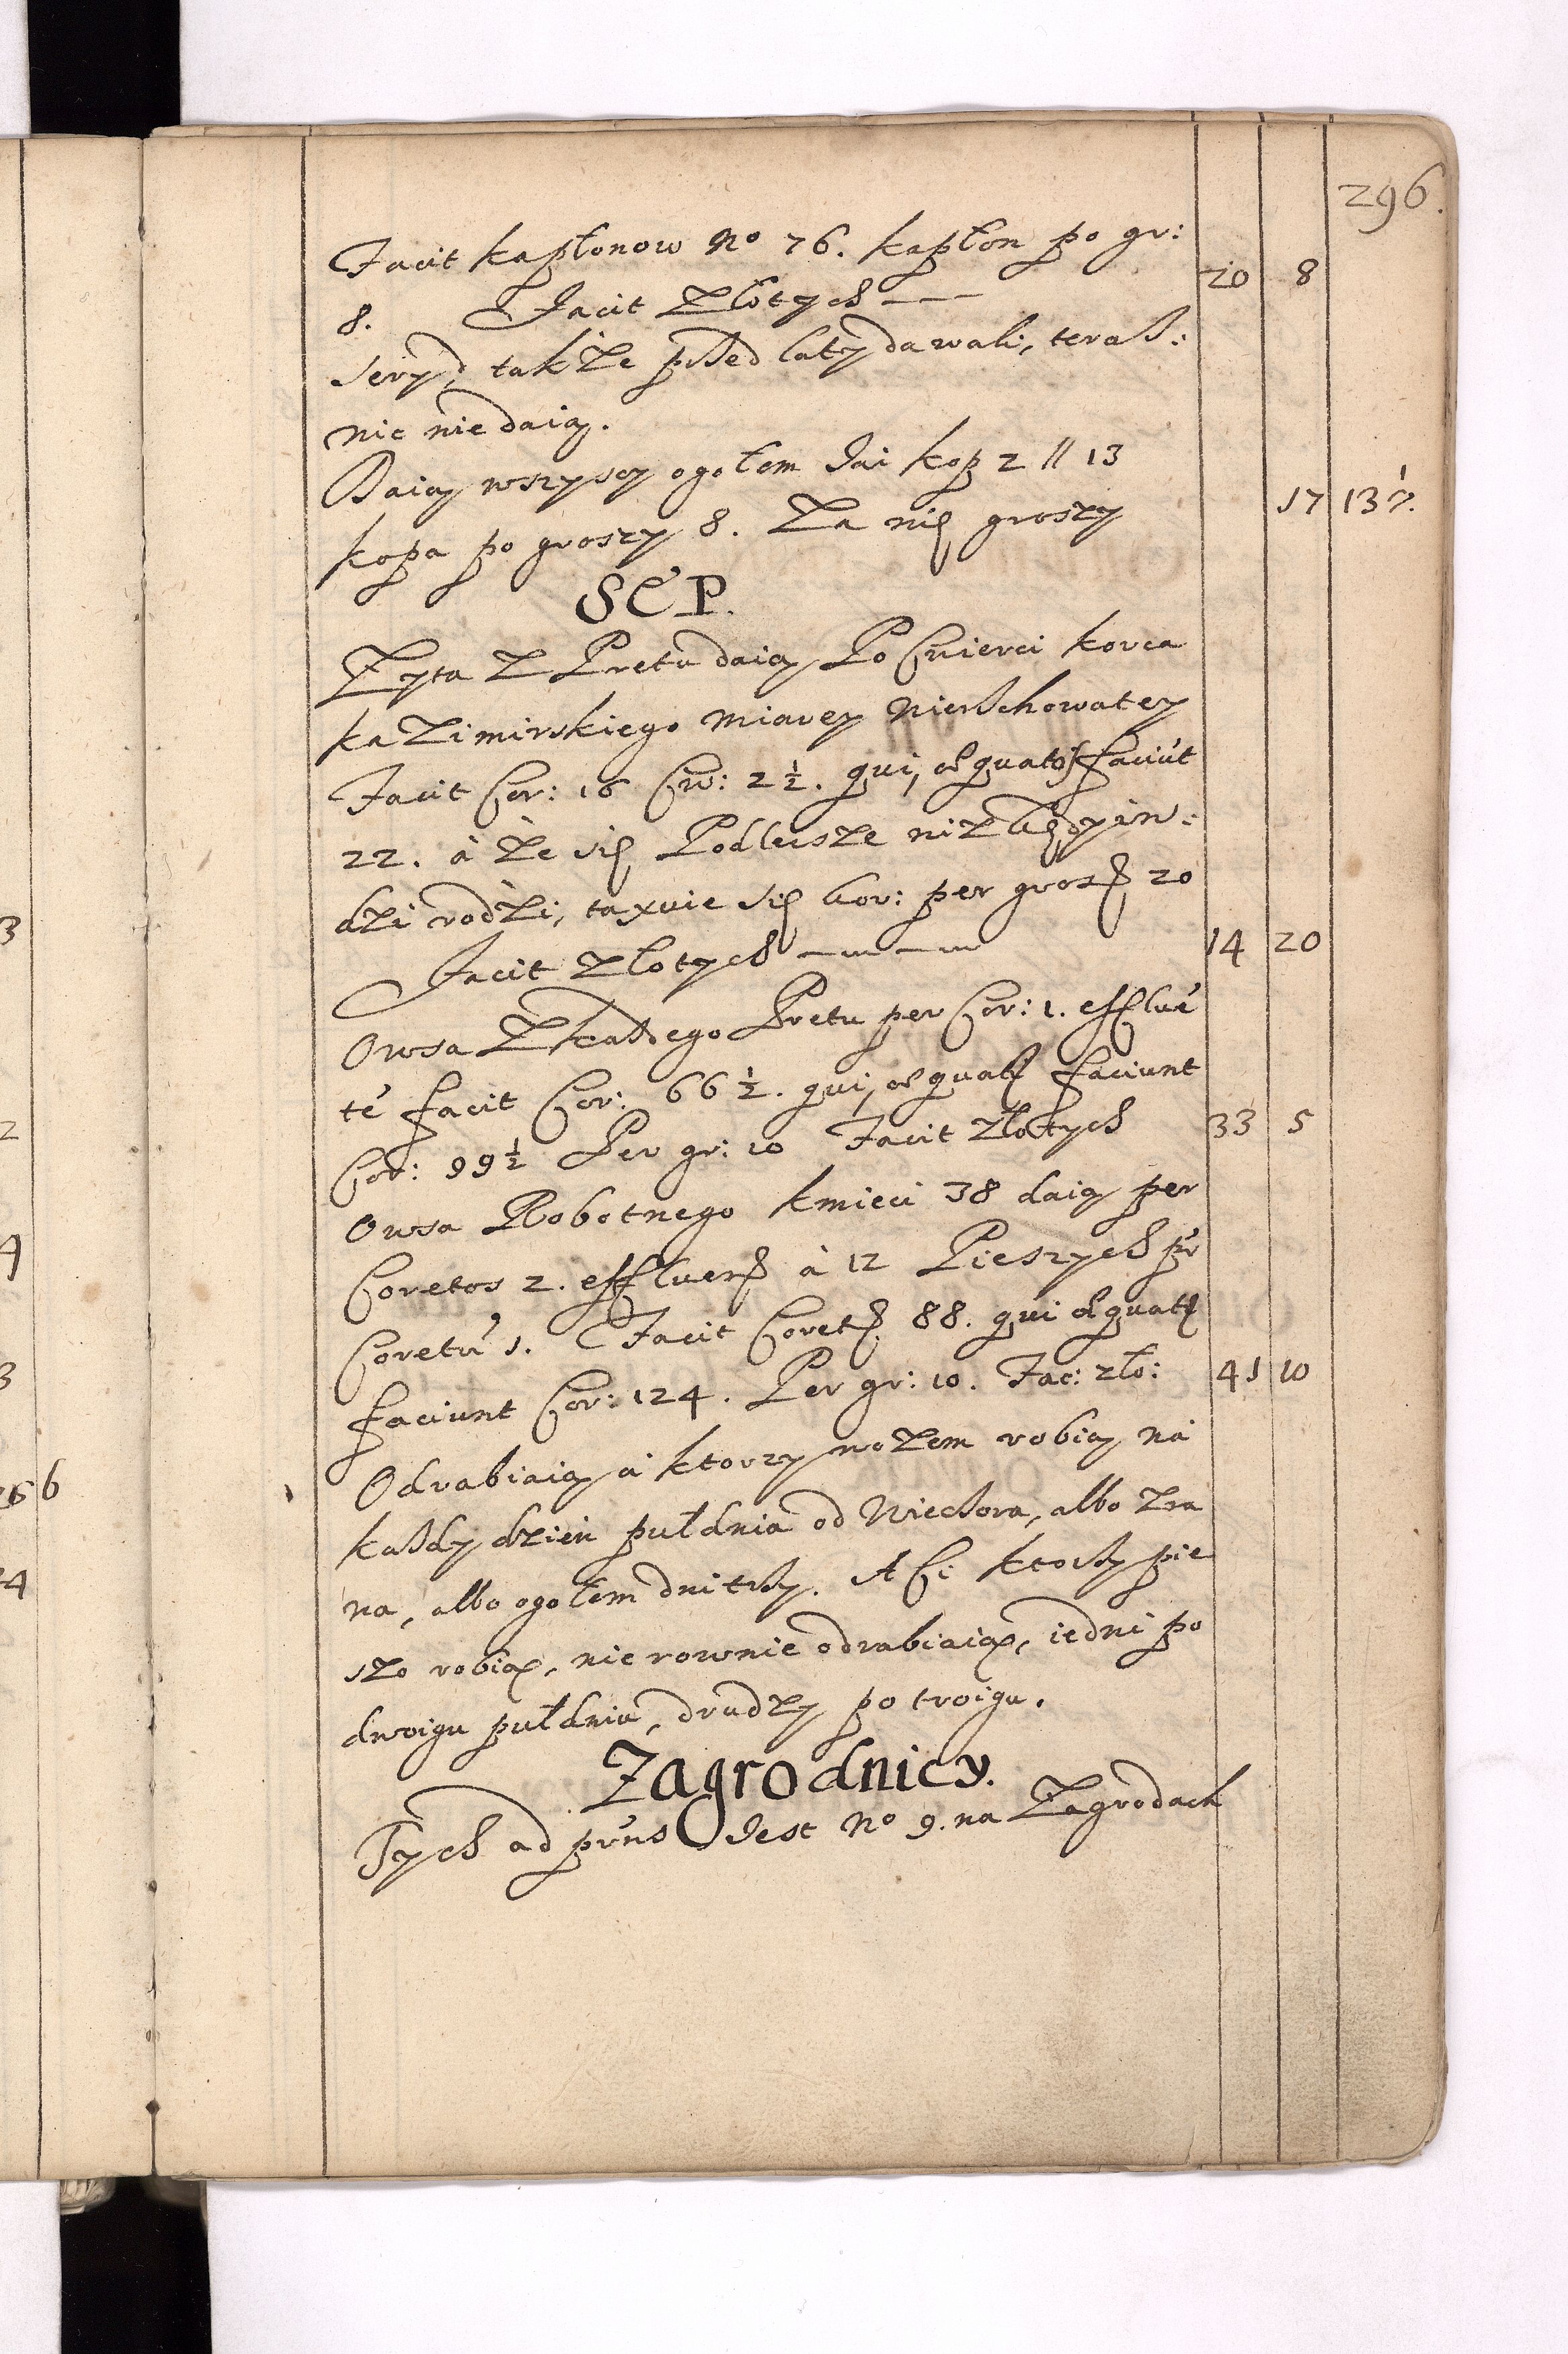 296.
Facit kapłonow No 76. kapłon po gr:
8. Facit Złotych — — 20 8
Sery także pßed laty dawali, teraß:
nic nie daią.
Daią wszyscy ogołem Iai kop 2 // 13
kopa po groszy 8. Za nię groszy 17 13 1/2.
SEP.
Zyta Z Pretu daią Po Cwierci korca
kaZimirskiego miarey nierßchowatey
Facit Cor: 16 Cw: 2 1/2. qui, coæquatos faciūt
22. à Ze się Podleisze niZ
dzi rodZi, taxuie się kor: per grosz 20
Facit Złotych — — — 14 20
Owsa Zkaßdego Pretu per Cor: 1. effluē
tē facit Cor: 66 1/2. qui, coæquat faciunt
Cor: 99 1/2 Per gr: 10 Facit Złotych 33 5
Owsa Robotnego kmieci 38 daią per
Coretos 2. effluen à 12 Pieszych pr
Coretū 1. Facit Coret 88. qui coæquat
faciunt Cor: 124. Per gr: 10. Fac: zło: 41 10
Odrabiaią à ktorzy wozem robią ná
kaßdy dzień pułdnia od Wieczora, albo Zra
na, albo ogołem dni trßy. A Ci ktorßy pie
szo robią, nierownie odrabiaią, iedni po
dwoigu pułdniu, drudzy po troigu.
Zagrodnicy.
Tych ad prn̄s Iest No 9. na Zagrodach